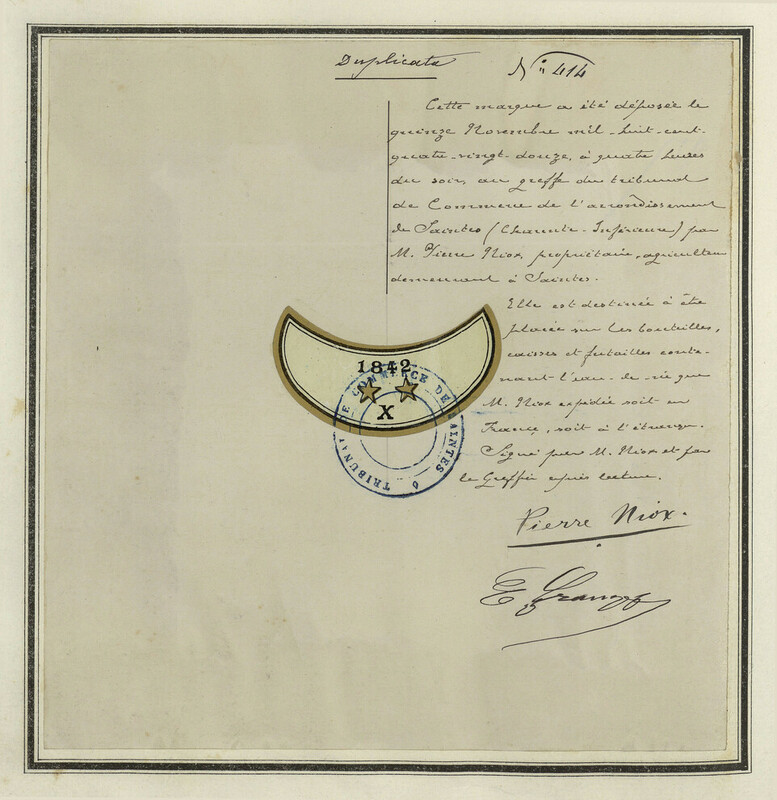 Duplicata
N° 414
Cette marque a été déposée le
quinze Novembre mil-huit-cent-
quatre-vingt-douze, à quatre heures
du soir, au greffe du tribunal
de Commerce de l'arrondissement
de Saintes (Charente-Inférieure) par
M. Pierre Niox, propriétaire, agriculteur
demeurant à Saintes.
Elle est destinée à être
placée sur les bouteilles,
caisses et futailles conte-
nant l'eau-de-vie que
M. Niox expédie soit en
France, soit à l'étranger.
Signé par M. Niox et par
le Greffier après lecture.
1842
X
TRIBUNAL DE COMMERCE DE SAINTES
Pierre Niox.